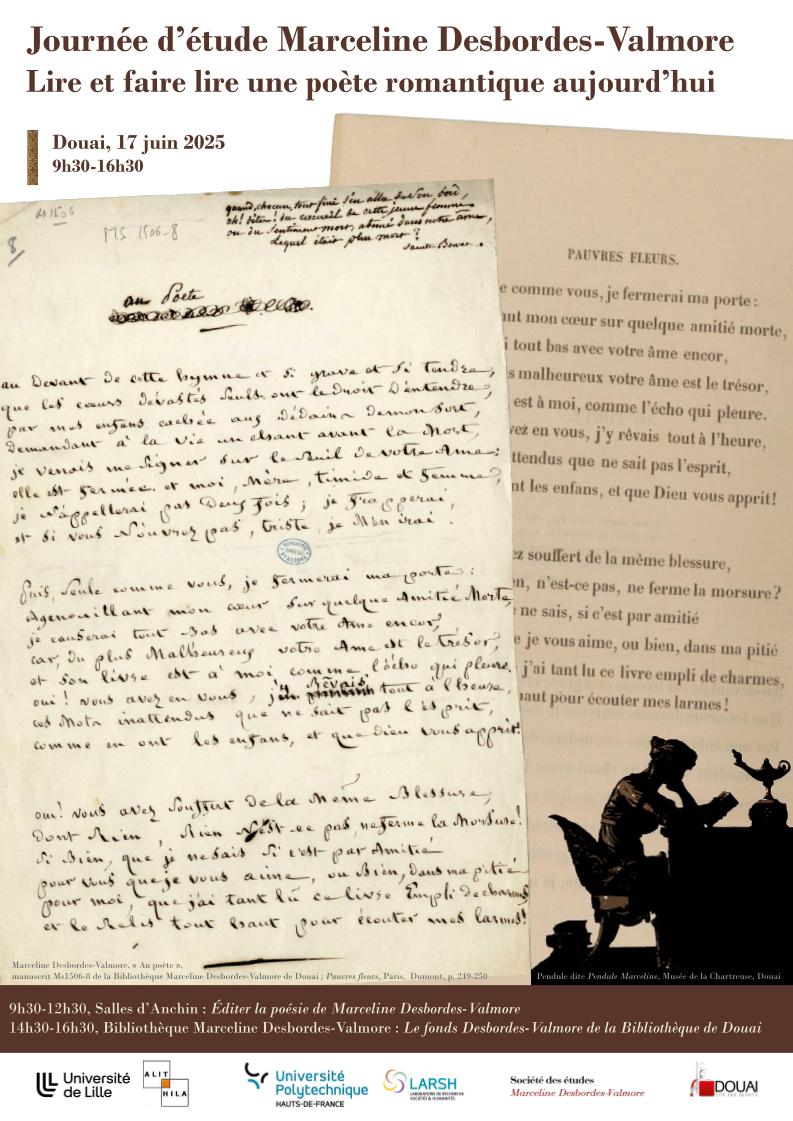 Journée d'étude Marceline Desbordes-Valmore
Lire et faire lire une poète romantique aujourd'hui
Douai, 17 juin 2025
9h30-16h30
Ms 1506
MS 1506-8
8
quand, chacun, tout fini s'en alla de son bord,
oh! dites! du cercueil de cette jeune femme
ou du sentiment mort, abîmé dans notre âme,
Lequel était plus mort ?
Sainte-Beuve.
au Poète
au Devant de cette hymne et si grave et si tendre,
que les cœurs dévastés seuls ont le droit D'entendre,
par mes enfans cachée aux Dédains de mon sort,
Demandant à la vie un chant avant la Mort,
je venais me signer sur le seuil de votre Ame :
elle est fermée. et moi, Mère, timide et femme,
je N'appellerai pas Deux fois ; je frapperai,
et si vous N'ouvrez pas, triste, je M'en irai.
Puis, Seule comme vous, je fermerai ma porte :
Agenouillant mon cœur sur quelque Amitié Morte,
je causerai tout Bas avec votre Ame encor,
car, du plus Malheureux votre Ame est le trésor,
et son livre est à moi, comme l'écho qui pleure.
oui ! vous avez en vous, j'y Rêvais tout à l'heure,
ces Mots inattendus que ne sait pas l'esprit,
comme en ont les enfans, et que dieu vous apprit!
oui! vous avez Souffert de la Même Blessure,
dont Rien, Rien N'est-ce pas, ne ferme la Morsure!
Si Bien, que je ne sais Si c'est par Amitié
pour vous que je vous aime, ou Bien, dans ma pitié
pour moi, que j'ai tant lû ce livre Empli de charmes,
et le Relis tout haut pour écouter mes larmes!
PAUVRES FLEURS.
e comme vous, je fermerai ma porte :
ant mon cœur sur quelque amitié morte,
i tout bas avec votre âme encor,
s malheureux votre âme est le trésor,
est à moi, comme l'écho qui pleure.
vez en vous, j'y rêvais tout à l'heure,
ttendus que ne sait pas l'esprit,
nt les enfans, et que Dieu vous apprit!
ez souffert de la même blessure,
en, n'est-ce pas, ne ferme la morsure?
ne sais, si c'est par amitié
e je vous aime, ou bien, dans ma pitié
j'ai tant lu ce livre empli de charmes,
haut pour écouter mes larmes!
Marceline Desbordes-Valmore, « Au poète »,
manuscrit Ms1506-8 de la Bibliothèque Marceline Desbordes-Valmore de Douai ; Pauvres fleurs, Paris, Dumont, p. 249-250
Pendule dite Pendule Marceline, Musée de la Chartreuse, Douai
9h30-12h30, Salles d'Anchin : Éditer la poésie de Marceline Desbordes-Valmore
14h30-16h30, Bibliothèque Marceline Desbordes-Valmore : Le fonds Desbordes-Valmore de la Bibliothèque de Douai
Université
de Lille
ALIT
HILA
Université
Polytechnique
HAUTS-DE-FRANCE
LARSH
LABORATOIRE DE RECHERCHE
SOCIÉTÉS & HUMANITÉS
Société des études
Marceline Desbordes-Valmore
DOUAI
CITÉ DES GÉANTS